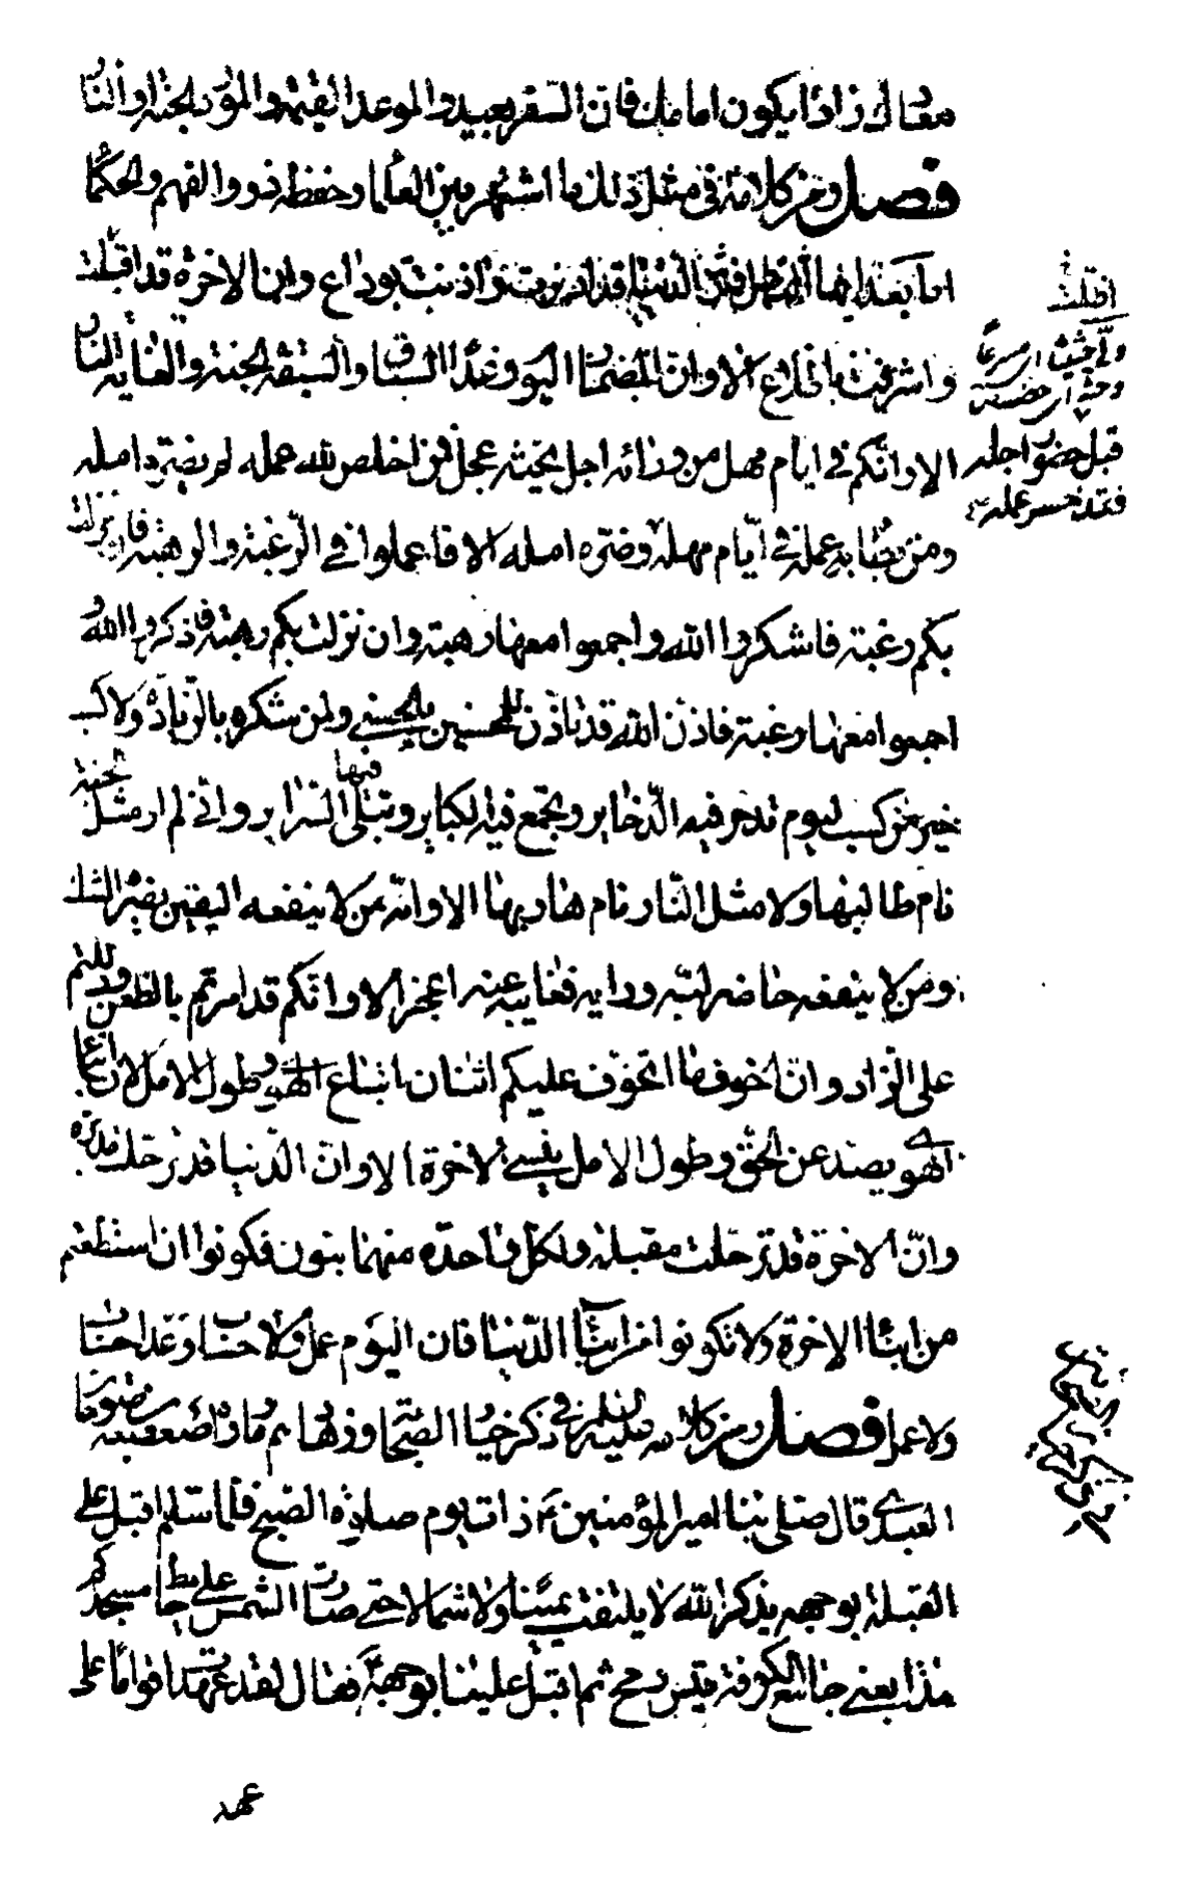 معك زادا يكون امامك فان السفر بعيد والموعد القيمة والمورد الجنة او النار
فصل ومن كلامه في مثل ذلك ما اشتهر بين العلماء وحفظه ذووا الفهم والحكما
اما بعد ايها الناس فان الدنيا قد ادبرت واذنت بوداع وان الاخرة قد اقبلت
واشرفت باطلاع الا وان المضمار اليوم وغدا السباق والسبقة الجنة والغاية النار
الا وانكم في ايام مهل من ورائه اجل يحثه عجل فمن اخلص لله عمله لم يضره امله
ومن بطا به عمله في ايام مهله ضره امله الا فاعملوا في الرغبة والرهبة فان نزلت
بكم رغبة فاشكروا الله واجمعوا معها رهبة وان نزلت بكم رهبة فاذكروا الله
اجمعوا معها رغبة فان الله قد تاذن للمحسنين بالحسنى ولمن شكره بالزيادة ولا كسب
خير من كسب ليوم تدخر فيه الذخاير وتجمع فيه الكباير وتبلى فيها السراير واني لم ار مثل الجنة
نام طالبها ولا مثل النار نام هاربها الا وانه من لا ينفعه اليقين يضره الشك
ومن لا ينفعه حاضر لبه ورايه فغايبه عنه اعجز الا وانكم قد امرتم بالظعن ودللتم
على الزاد وان اخوف ما اتخوف عليكم اثنان اتباع الهوى وطول الامل لان اتباع
الهوى يصد عن الحق وطول الامل ينسي الاخرة الا وان الدنيا قد ترحلت مدبرة
وان الاخرة قد ترحلت مقبلة ولكل واحدة منهما بنون فكونوا ان استطعتم
من ابناء الاخرة ولا تكونوا من ابناء الدنيا فان اليوم عمل ولا حساب وغدا حساب
ولا عمل فصل ومن كلامه عليه السلم في ذكر خيار الصحابة وزهادهم ما رواه صعصعة بن صوحان
العبدي قال صلى بنا امير المؤمنين ع ذات يوم صلوة الصبح فلما سلم اقبل على
القبلة بوجهه يذكر الله لا يلتفت يمينا ولا شمالا حتى صارت الشمس على حايط مسجدكم
هذا يعني جامع الكوفة قيس رمح ثم اقبل علينا بوجهه فقال لقد عهدت اقواما على
عهد
اظلت
ولى حثيثا اي مسرعا
وحثه اي حضه
قبل حضور اجله
فقد خسر عمله